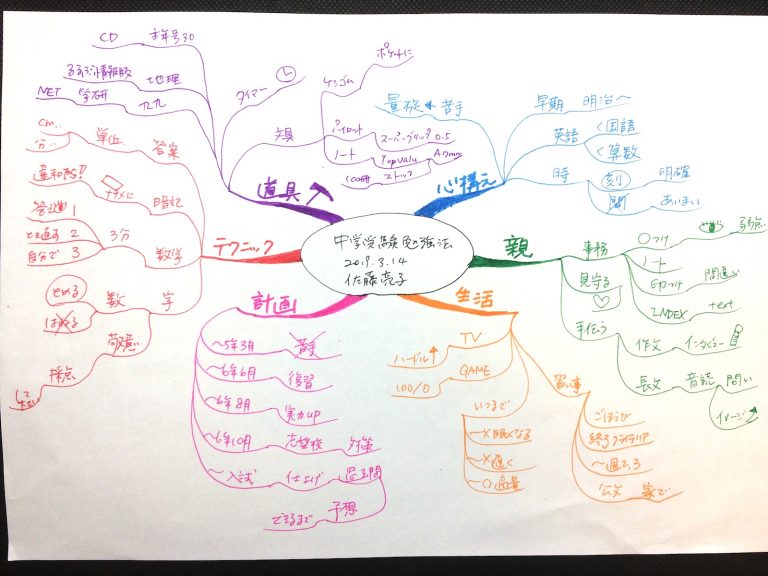 中学受験勉強法
2019.3.14
佐藤亮子
道具
CD
年号30
るるぶ情報版
地理
NET
学研
九九
タイマー
文具
ケシゴム
ポケットに
パイロット
スーパーグリップ0.5
ノート
Topvalu
A7mm
100冊
ストック
心構え
量
苦手
早期
明治~
英語
国語
算数
時
刻
明確
間
あいまい
親
事務
○つけ
ノート
印つけ
間違い
INDEX
text
見守る
手伝う
作文
インタビュー
長文
音読
問い
イメージ
生活
TV
ハードル
GAME
100/0
いつまで
~×眠くなる
~×遠く
~○適量
習い事
ごほうび
終了クライテリア
~週2,3
公文
家で
計画
~5年3月
苦手
~6年6月
復習
~6年8月
実力up
~6年10月
志望校
対策
~入試
仕上げ
過去問
予想
できるまで
テクニック
cm..
分..
単位
答案
違和感!!
ナナメに
暗記
答え 1
とき直す 2
自分で 3
3分
数学
とめる
はねる
数
字